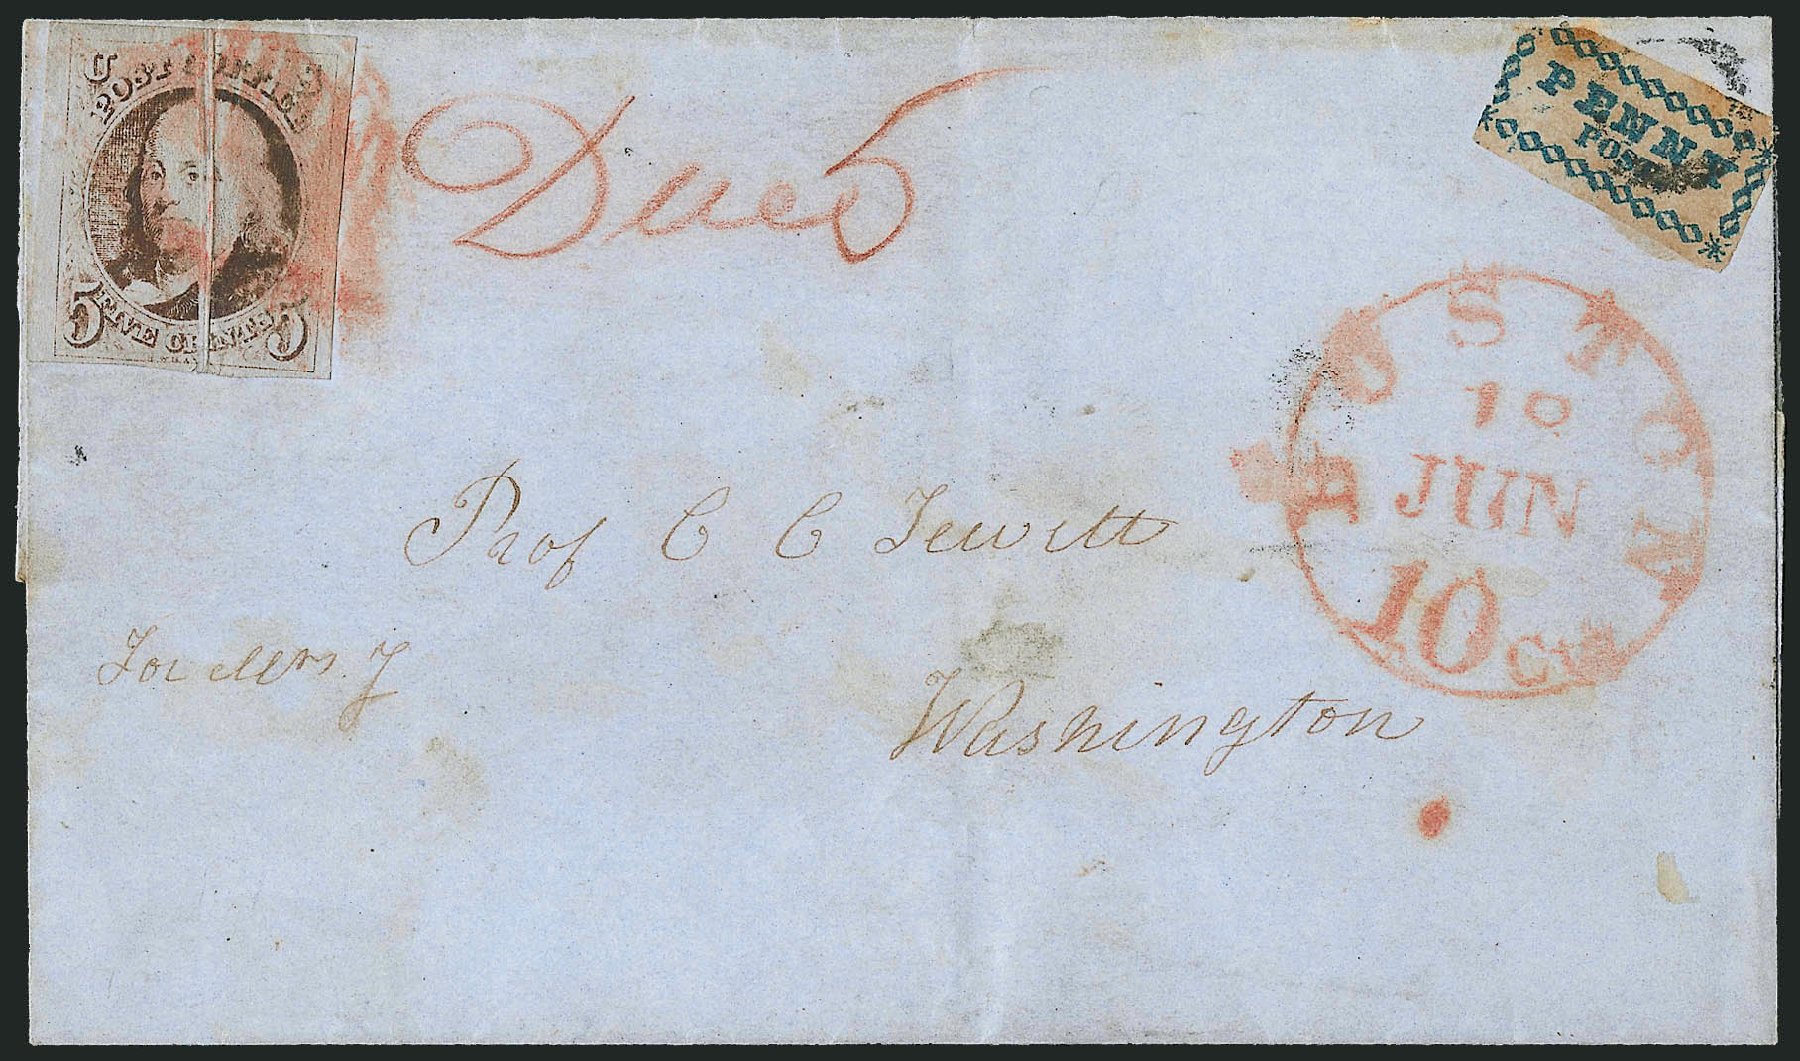 U S
POST OFFICE
5 FIVE CENTS 5
Due 5
PENNY
POST
BOSTON
10
JUN
10 cts
Prof C C Jewett
For Mrs. J
Washington